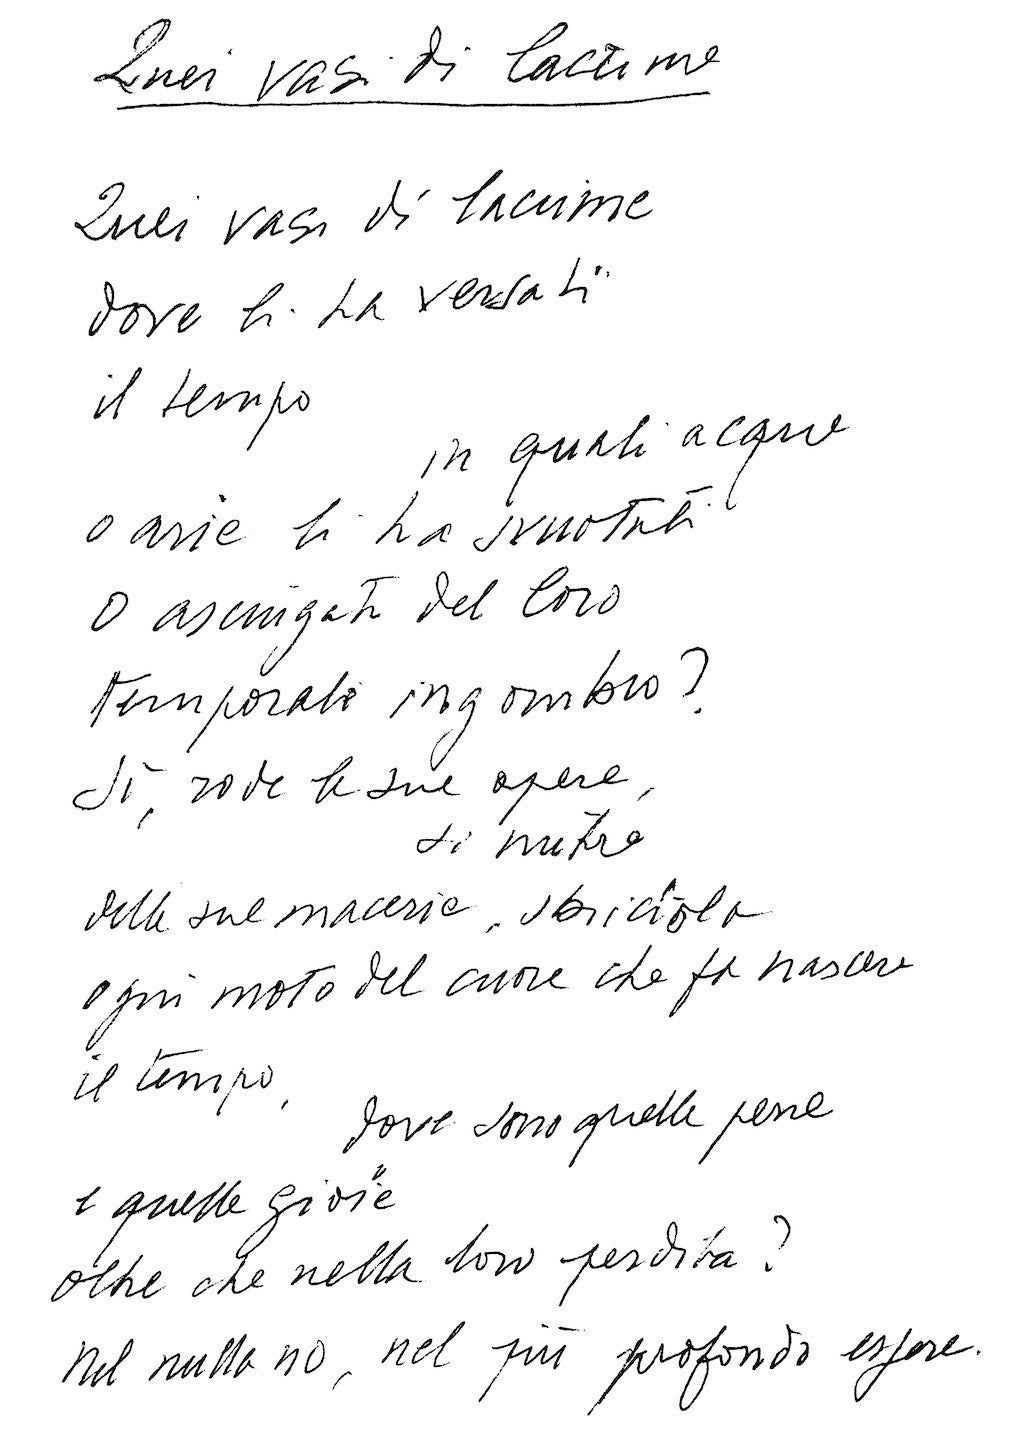 Quei vasi di lacrime
Quei vasi di lacrime
dove li ha versati
il tempo
in quali acque
o arie li ha svuotati
o asciugati del loro
temporale ingombro?
Sì, rode le sue opere,
si nutre
delle sue macerie, sbriciola
ogni moto del cuore che fa nascere
il tempo,
dove sono quelle pene
e quelle gioie
oltre che nella loro perdita?
Nel nulla no, nel più profondo essere.